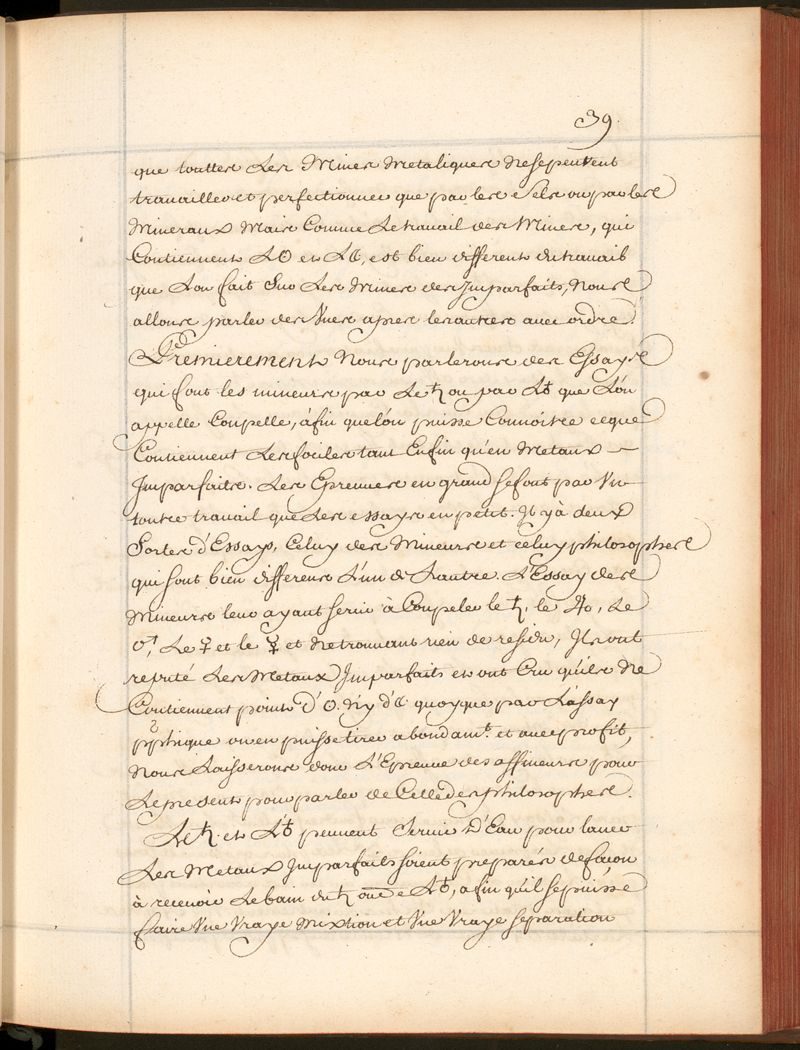 39.
que touttes Les Mines Metaliques ne se peuvent
travailler et perfectionner que par les Sels ou par les
Mineraux Mais Comme Le travail des Mines, qui
Contiennent L'☉ et L☾, est bien different du travail
que Lon fait Sur Les Mines des Imparfaits, Nous
allons parler des Unes apres les autres avec ordre.
Premierement Nous parlerons des Essays
qui font les mineurs par Le ♄ ou par L♁ que L'on
appelle Coupelle, áfin que lón puisse Connoitre ce que
Contiennent Les fociles tant Enfin qu'en Metaux
Imparfaits. Les Epreuves en grand se font par Un
toutre travail que Les essays en petit. Il yà deux
Sortes d'Essays, Celuy des Mineurs et celuy philosophes
qui sont bien differens L'un de L'autre. L'Essay des
Mineurs leur ayant servi à Coupeler le ♄, le ♃, Le
♂, Le ♀ et le ☿ et Ne trouvant rien de residu, Ils ont
reputé Les Metaux Imparfaits et ont Cru qu'ils Ne
Contiennent point d'☉. N'y d'☾ quoyque par L'assay
pphique on en puisse tirer abondamt. et avec profit,
Nous Laisserons donc L'Epreuve des affineurs pour
Le present pour parler de Celle des philosophes.
Le ♄. et L'♁ peuvent Servir d'Eau pour laver
Les Metaux Imparfaits soient preparés de facon
à recevoir Le bain du ♄ ou de L♁, afin qu'il se puisse
faire Une Vraye Mixtion et Une Vraye separation